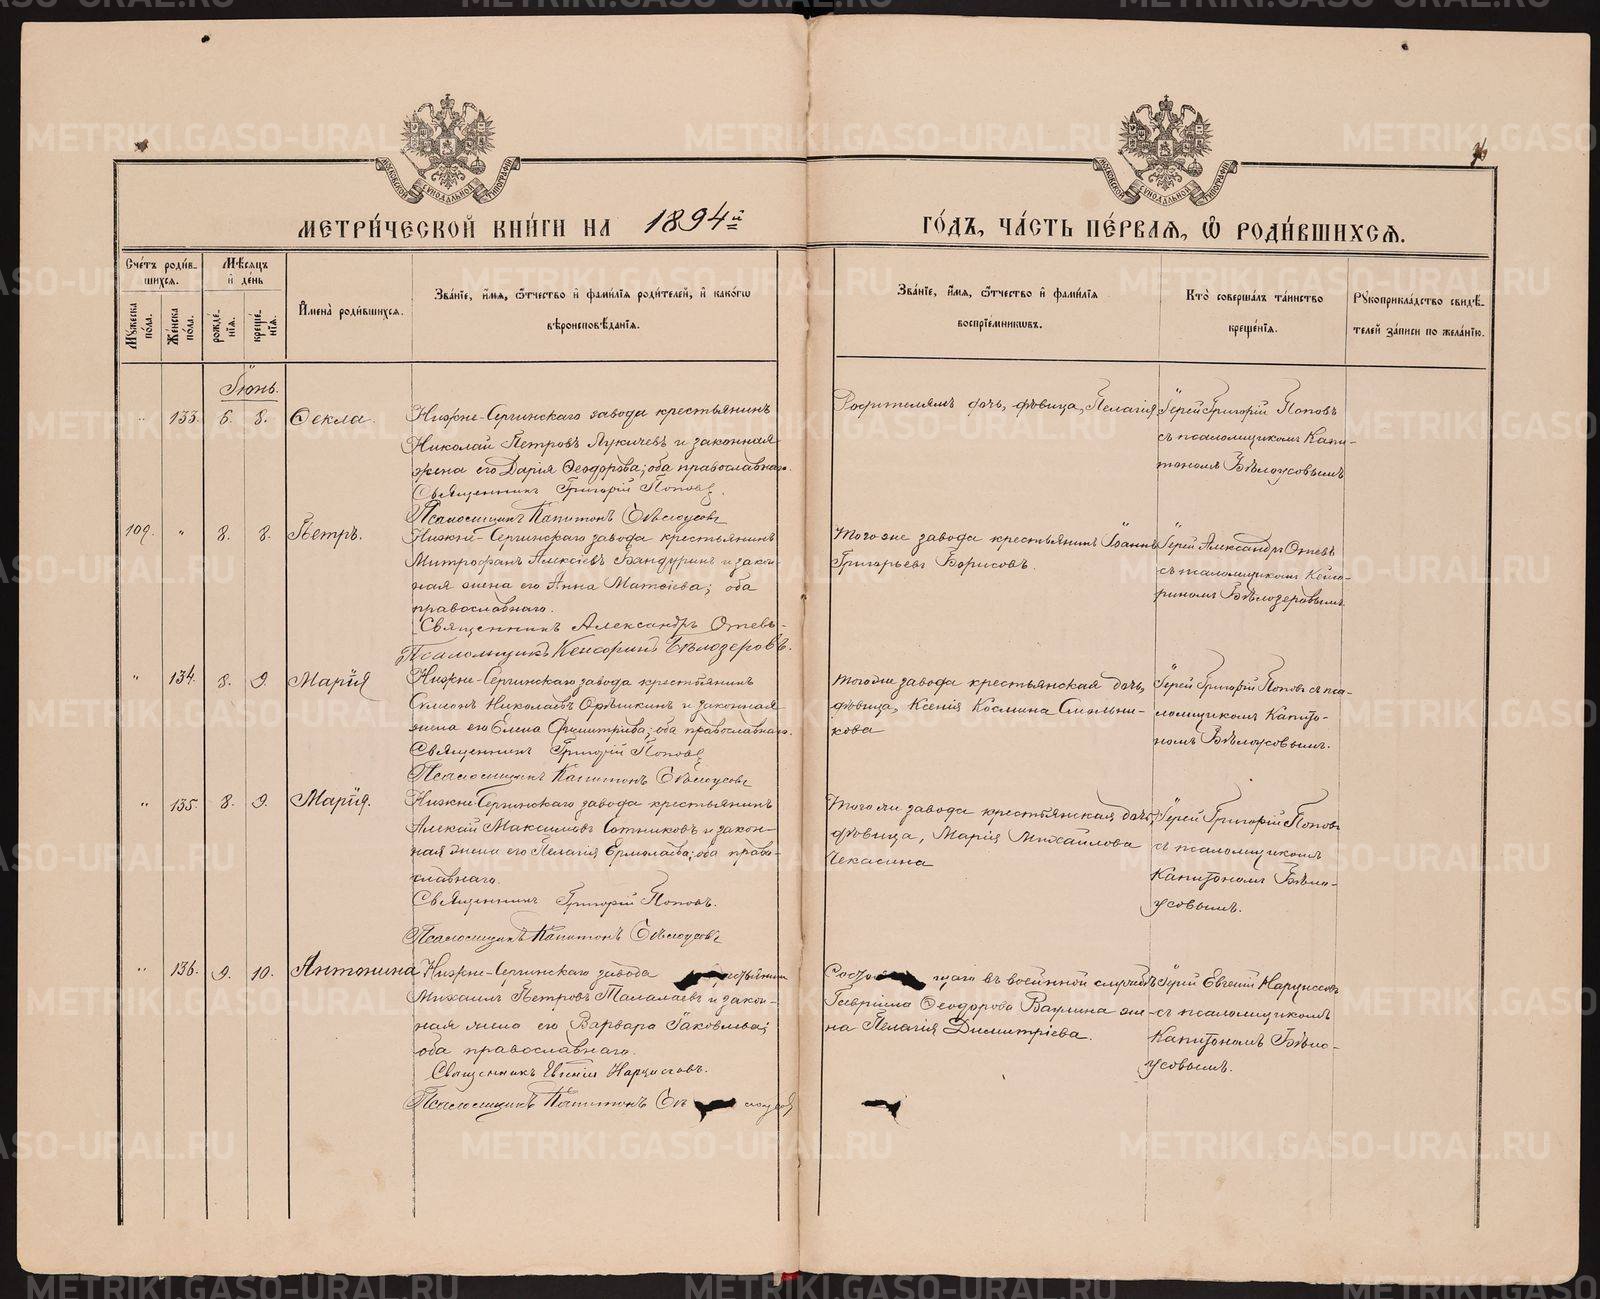 МЕТРИ́ЧЕСКОЙ КНИ́ГИ НА 1894й ГО́ДЪ, ЧА́СТЬ ПЕ́РВАѦ, Ѽ РОДИ́ВШИХСѦ.
Сче́тъ роди́в-
шихся.
Мѣ́сяцъ
и҆ де́нь
Мꙋ́жеска по́ла.
Же́нска по́ла.
рожде́-
нїѧ.
креще́-
нїѧ.
И҆мена̀ роди́вшихсѧ.
Зва́нїе, и҆́мѧ, ѻ҆́тчество и҆ фами́лїѧ роди́телей, и҆ како́гѡ
вѣроисповѣ́данїѧ.
Зва́нїе, и҆́мѧ, ѻ҆́тчество и҆ фами́лїѧ
воспрїе́мникѡвъ.
Кто̀ соверша́лъ та́инство
креще́нїѧ.
Рꙋкоприкла́дство свидѣ́-
телей за́писи по жела́нїю.
Іюнь.
" 133. 6. 8. Ѳекла.
Нижне-Сергинскаго завода крестьянинъ
Николай Петровъ Лукичевъ и законная
жена его Дарія Ѳеодорова; оба православнаго.
Священникъ Григорій Поповъ.
Псаломщикъ Капитонъ Бѣлоусовъ
Родителямъ дочь, дѣвица, Пелагія
Іерей Григорій Поповъ
съ псаломщикомъ Капи-
тономъ Бѣлоусовымъ
109. " 8. 8. Петръ.
Нижне-Сергинскаго завода крестьянинъ
Митрофанъ Алексіевъ Бандуринъ и закон-
ная жена его Анна Матѳіева; оба
православнаго.
Священникъ Александръ Отевъ
Псаломщикъ Кенсоринъ Бѣлозеровъ.
Того же завода крестьянинъ Іоаннъ
Григорьевъ Борисовъ.
Іерей Александръ Отевъ
съ псаломщикомъ Кенсо-
риномъ Бѣлозеровымъ
" 134. 8. 9. Марія
Нижне-Сергинскаго завода крестьянинъ
Симеонъ Николаевъ Орѣшкинъ и законная
жена его Елена Димитріева; оба православнаго.
Священникъ Григорій Поповъ
Псаломщикъ Капитонъ Бѣлоусовъ
Того же завода крестьянская дочь,
дѣвица, Ксенія Космина Смольни-
кова
Іерей Григорій Поповъ съ пса-
ломщикомъ Капито-
номъ Бѣлоусовымъ.
" 135 8. 9. Марія.
Нижне-Сергинскаго завода крестьянинъ
Алексій Максимовъ Сотниковъ и закон-
ная жена его Пелагія Ермолаева; оба право-
славнаго.
Священникъ Григорій Поповъ.
Псаломщикъ Капитонъ Бѣлоусовъ
Того же завода крестьянская дочь,
дѣвица, Марія Михайлова
Чекасина
Іерей Григорій Поповъ
съ псаломщикомъ
Капитономъ Бѣло-
усовымъ.
" 136. 9. 10. Антонина
Нижне-Сергинскаго завода крестьянинъ
Михаилъ Петровъ Талалаевъ и закон-
ная жена его Варвара Іаковлева;
оба православнаго.
Священникъ Евгеній Нарциссовъ.
Псаломщикъ Капитонъ Бѣлоусовъ
щаго въ военной службѣ
Гавріила Ѳеодорова Вахрина же-
на Пелагія Димитріева.
Іерей Евгеній Нарциссовъ
съ псаломщикомъ
Капитономъ Бѣло-
усовымъ.
METRIKI.GASO-URAL.RU